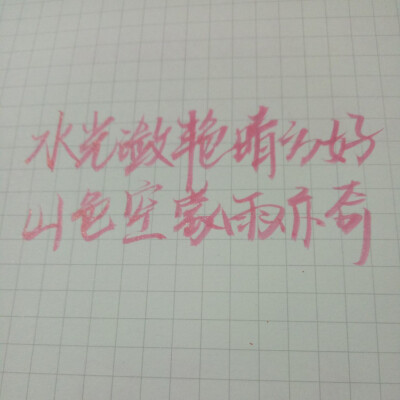 水光潋艳晴方好
山色空蒙雨亦奇